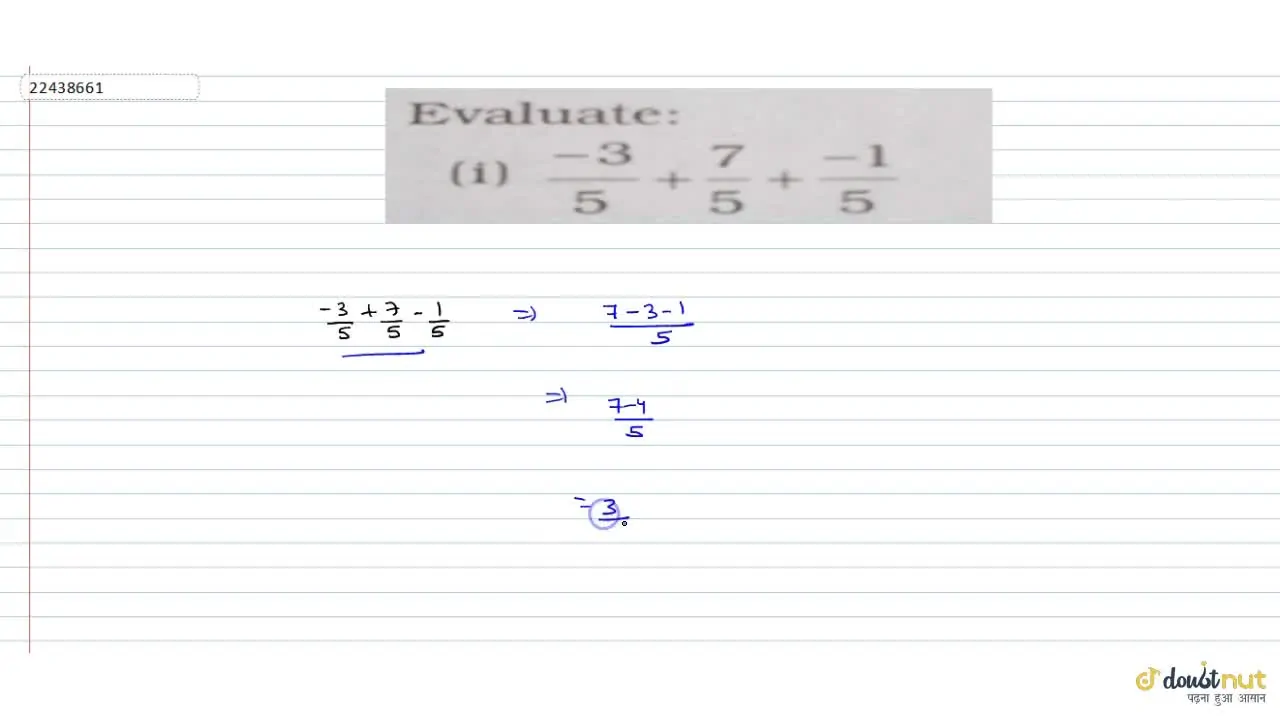 22438661
Evaluate:
(i) -3/5 + 7/5 + -1/5
-3/5 + 7/5 - 1/5 ⇒ 7-3-1/5
⇒ 7-4/5
= 3/
doubtnut
पढ़ना हुआ आसान